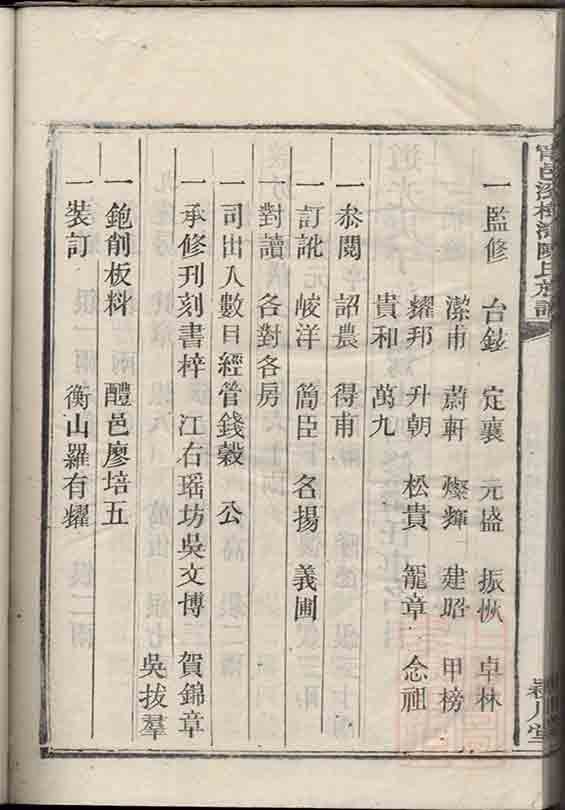 一監修 台鉉 定襄 元盛 振恢 卓林
潔甫 蔚軒 燦輝 建昭 甲榜
耀邦 升朝 松貴 寵章 念祖
貴和 萬九
一叅閱 詔農 得甫
一訂訛 峻洋 簡臣 名揚 義圃
一對讀 各對各房
一司出入數目經管錢穀 公
一承修刊刻書梓 江右瑶坊吳文博 賀錦章
吳拔羣
一鉋削板料 醴邑廖培五
一裝訂 衡山羅有耀